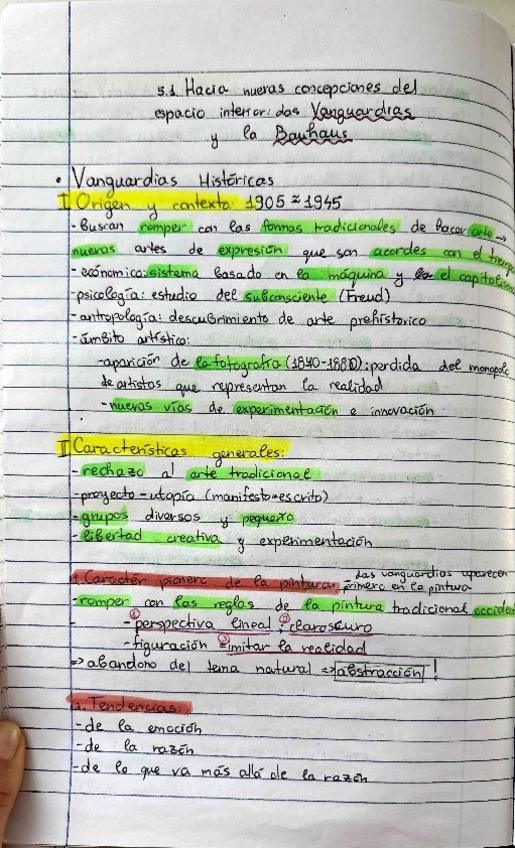 5.1. Hacia nuevas concepciones del
espacio interior: das Vanguardias
y la Bauhaus
• Vanguardias Históricas
I Origen y contexto: 1905 ≈ 1945
- Buscan romper con las formas tradicionales de hacer arte →
nuevas artes de expresión que son acordes con el tiempo
- económico: sistema basado en la máquina y el capitalismo
- psicología: estudio del subconsciente (Freud)
- antropología: descubrimiento de arte prehistorico
- ámbito artístico:
- aparición de la fotografía (1840-1880): perdida del monopolio
de artistas que representan la realidad
- nuevas vías de experimentación e innovación
II Características generales:
- rechazo al arte tradicional
- proyecto - utopía (manifesto = escrito)
- grupos diversos y pequeño
- libertad creativa y experimentación
1. Carácter pionero de la pintura: - das vanguardias aparecen
primero en la pintura
- romper con las reglas de la pintura tradicional occident
- - ① perspectiva lineal ; ② claroscuro
- figuración = ③ imitar la realidad
=> abandono del tema natural => abstracción !
2. Tendencias:
- de la emoción
- de la razón
- de lo que va más allá de la razón